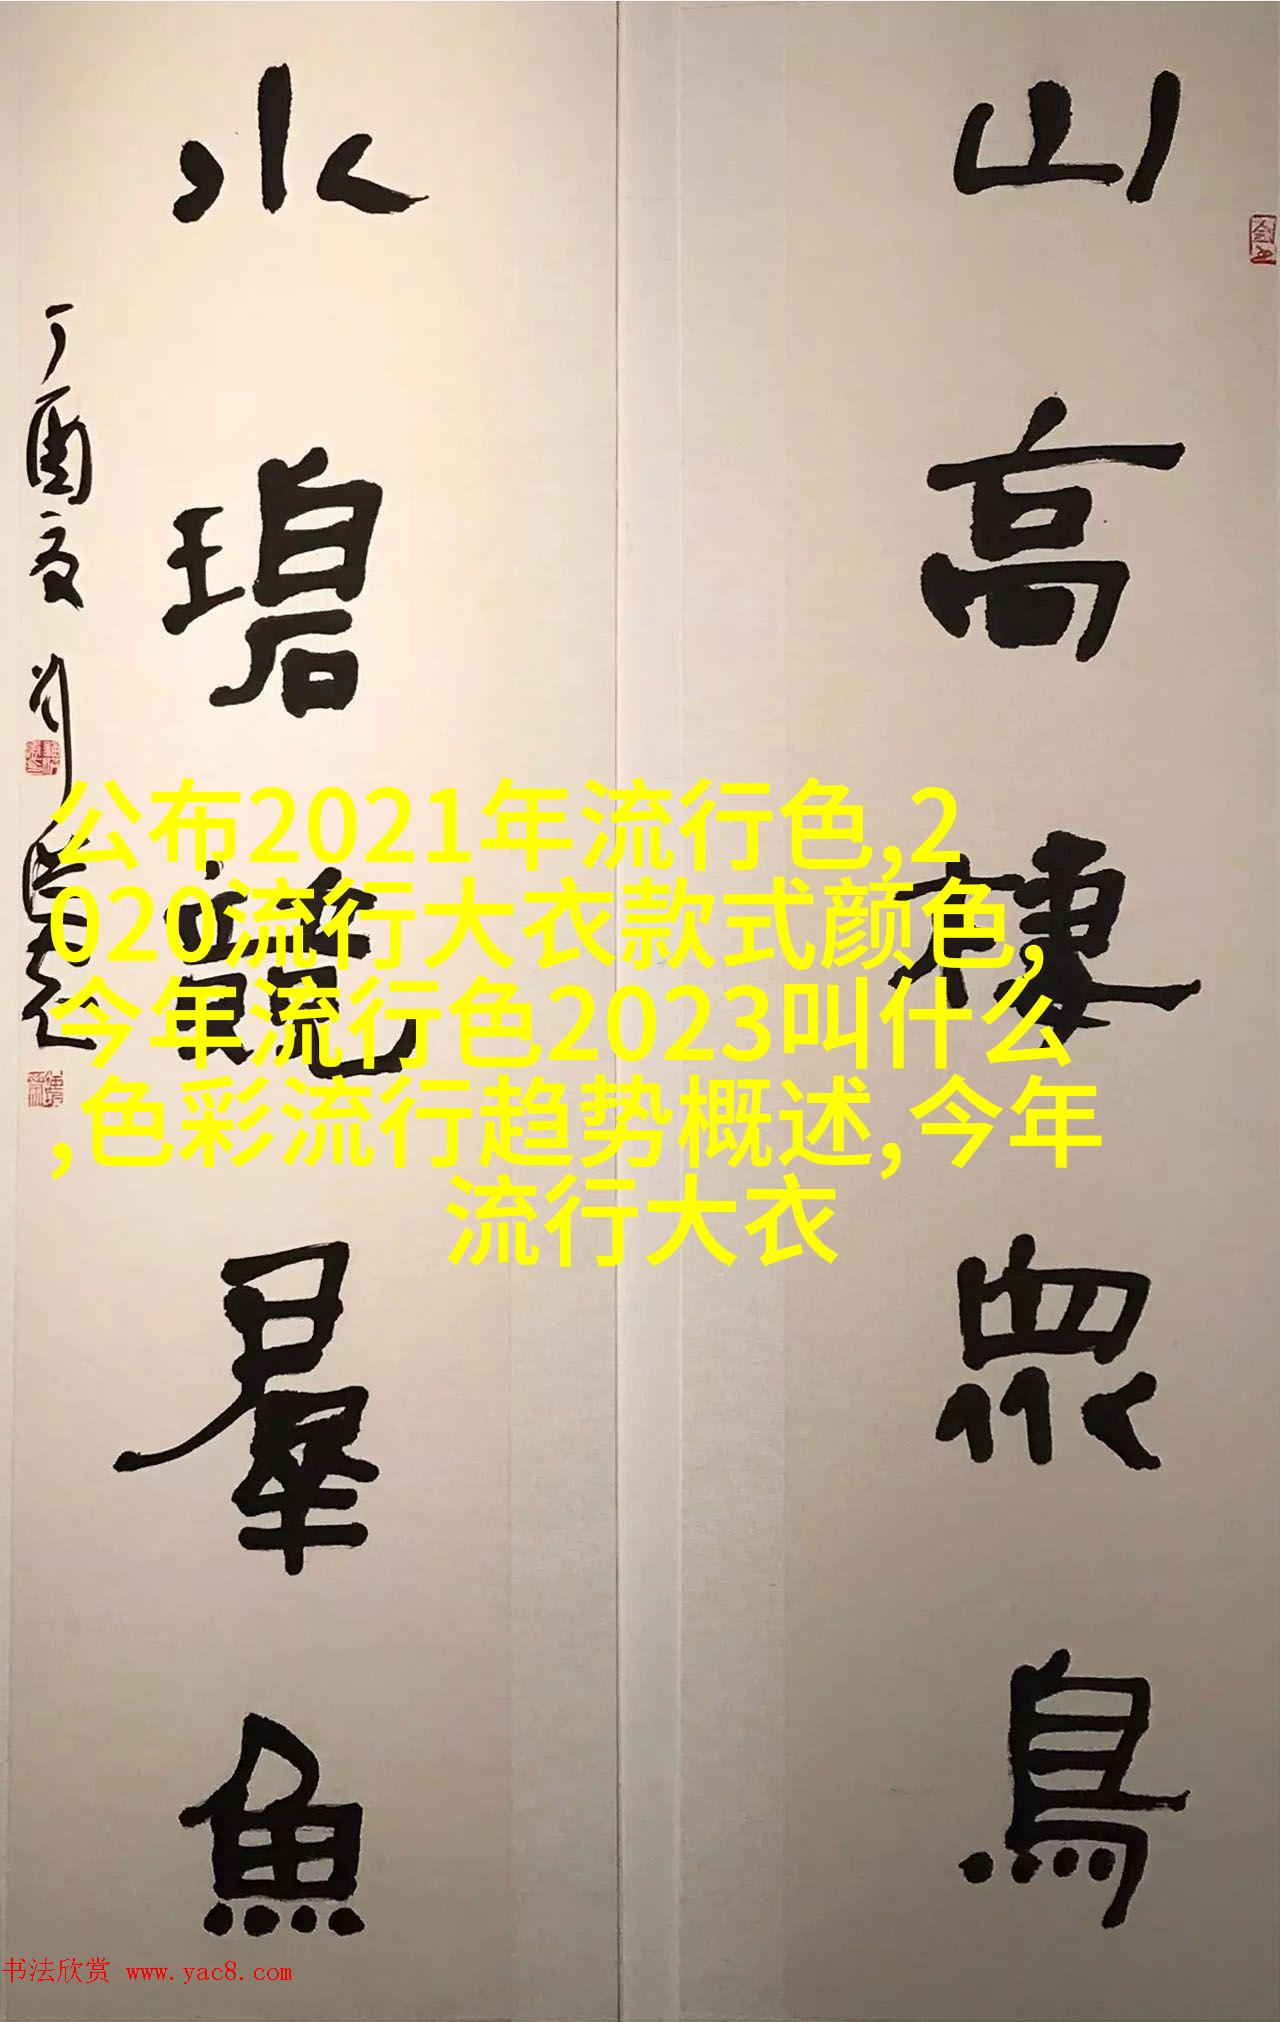 山高棲眾鳥
水碧 羣魚
丁酉夏
公布2021年流行色,2
020流行大衣款式颜色,
今年流行色2023叫什么
,色彩流行趋势概述,今年
流行大衣
书法欣赏 www.yac8.com